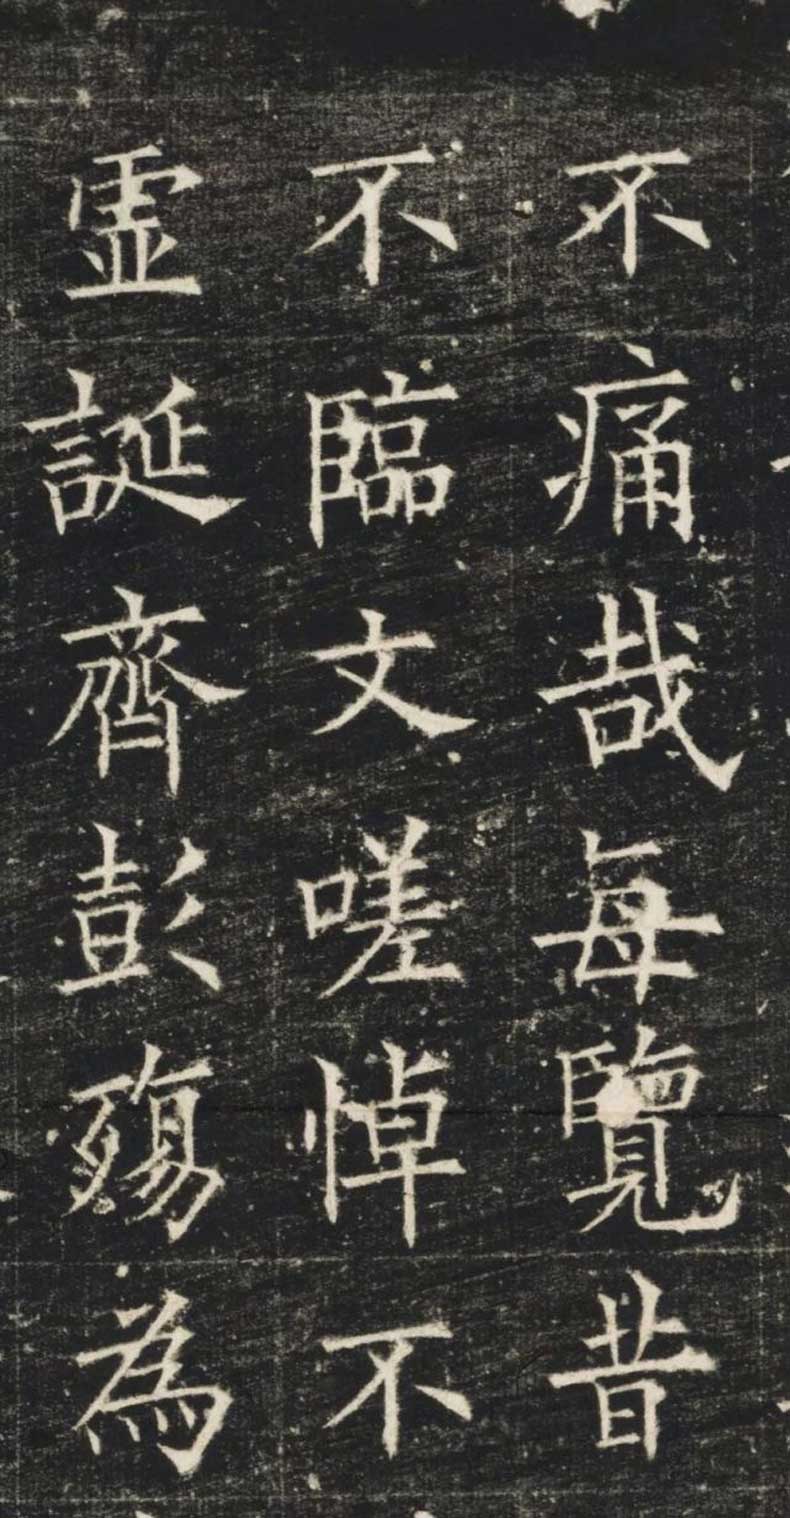 不痛哉每覽昔
不臨文嗟悼不
虛誕齊彭殤為